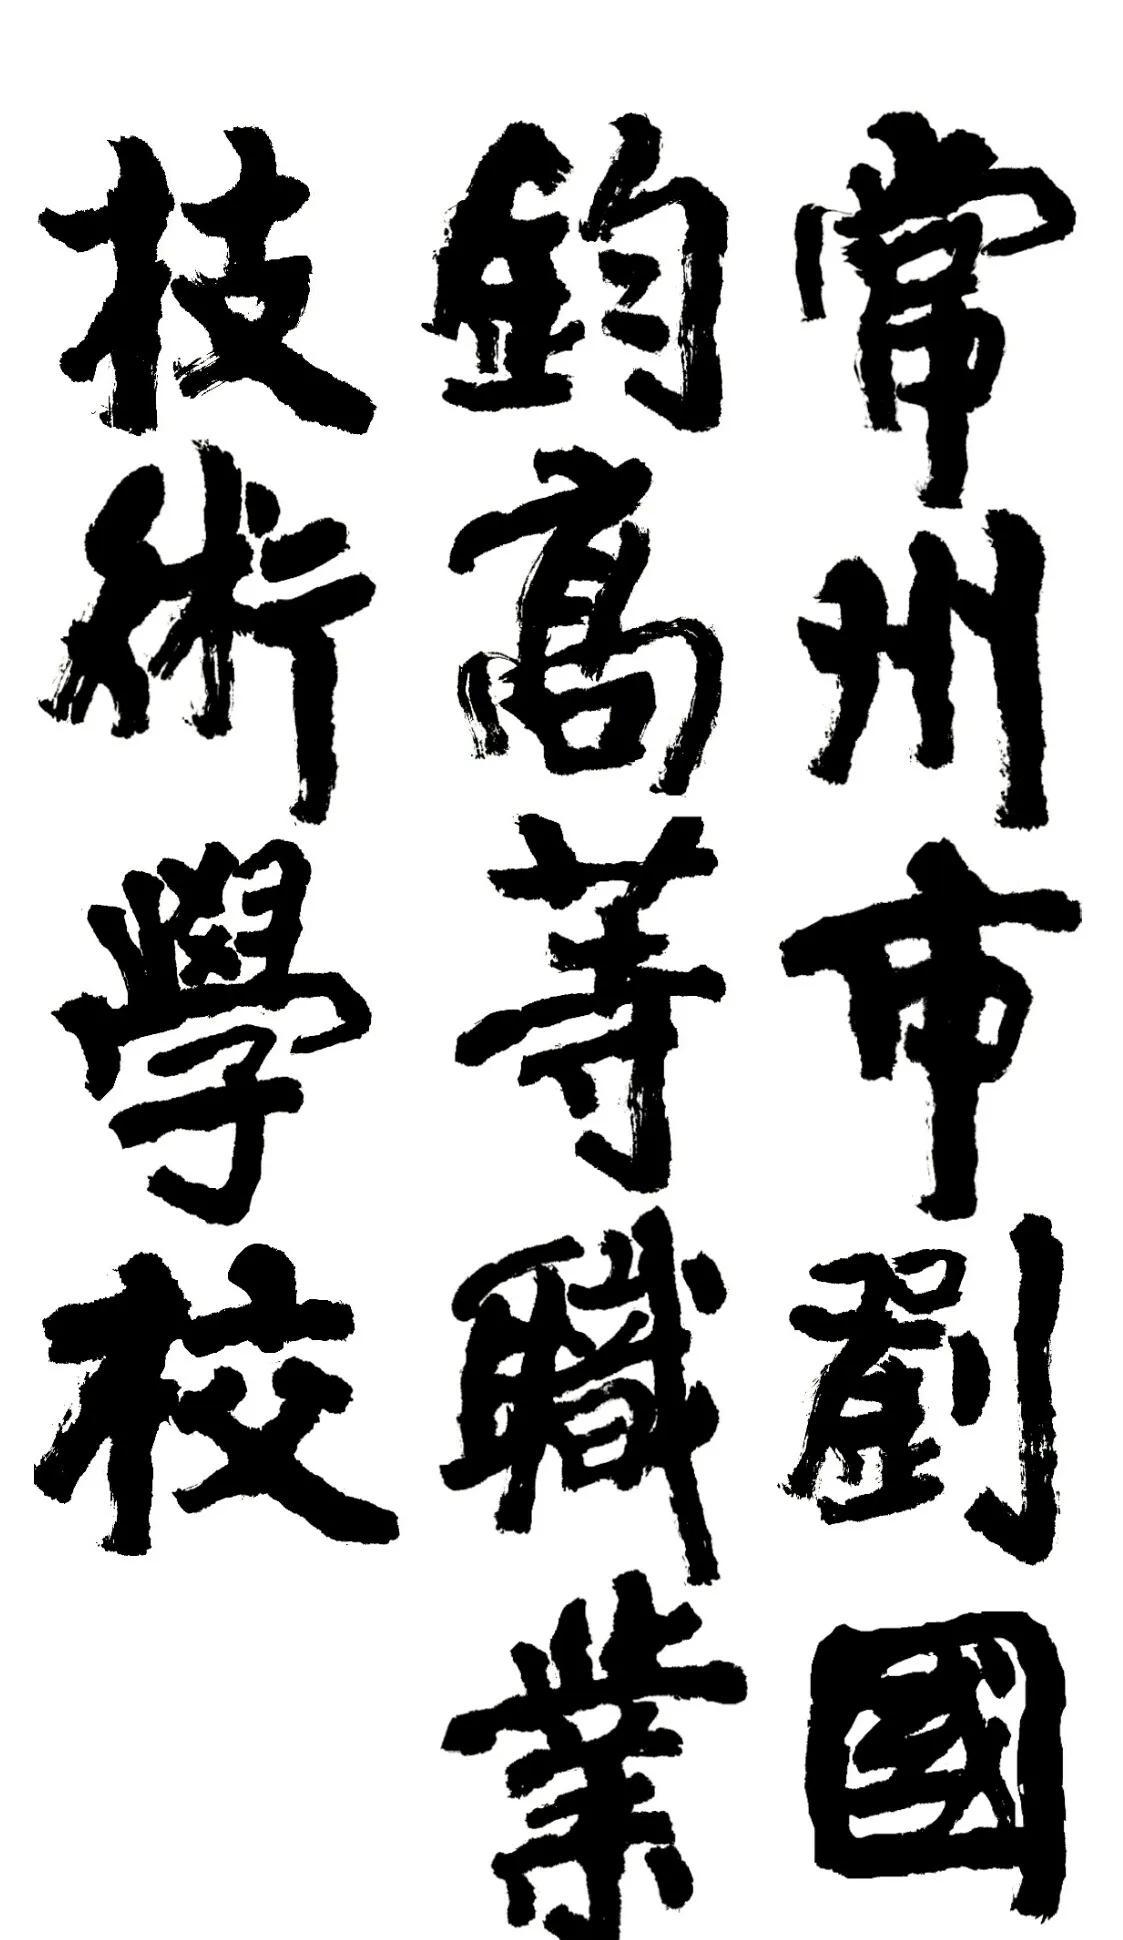 常州市劉國
鈞高等職業
技術學校